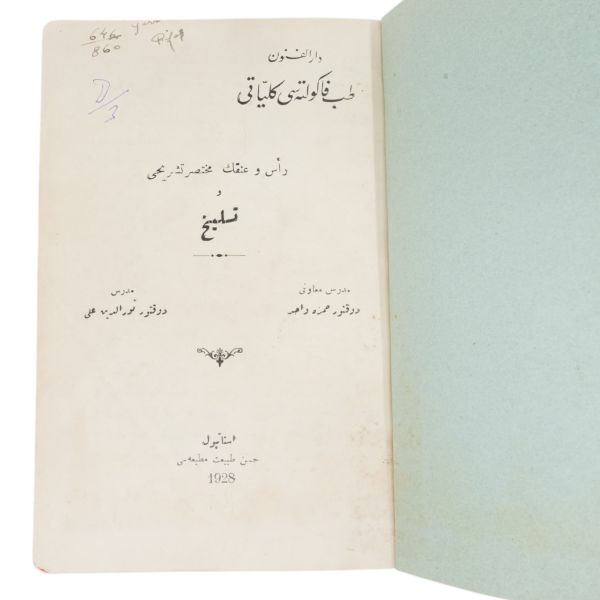 646
860
دار الفنون
طب فاکولته سی کلیّاتی
رأس و عنقك مختصر تشریحی
و
تسلیخ
مدرس معاونی
دوقتور حمزه واحد
مدرس
دوقتور نورالدین علی
استانبول
حسن طبیعت مطبعه سی
1928